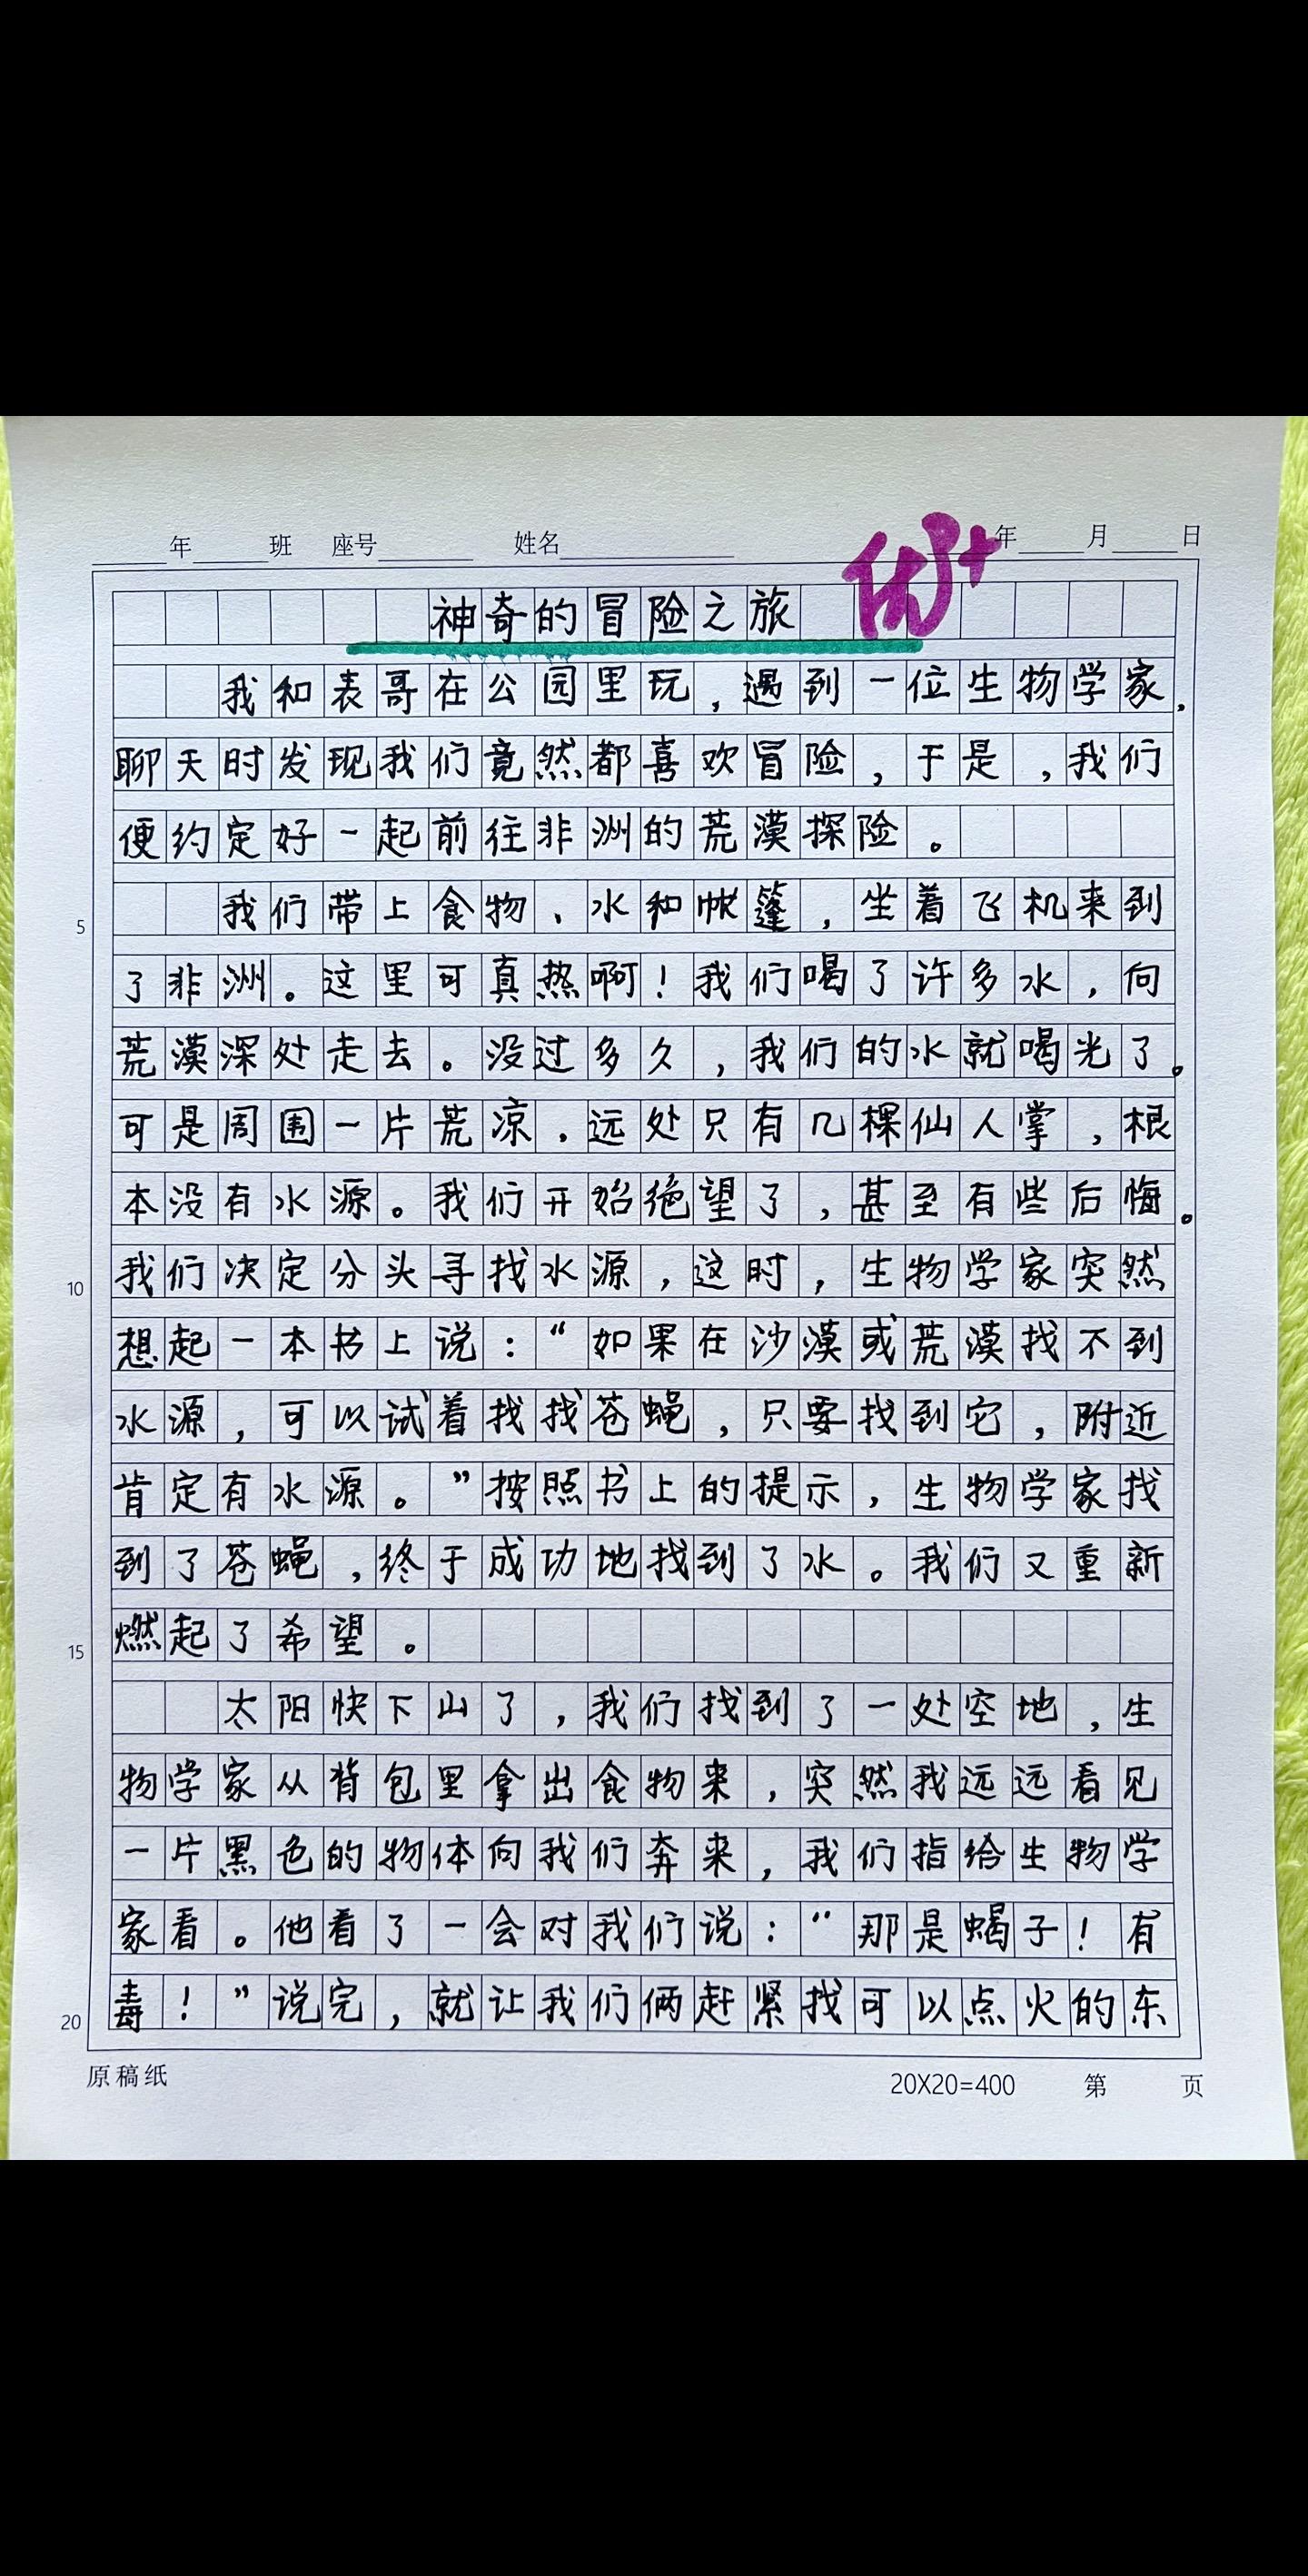 年 班 座号 姓名 年 月 日
优+
神奇的冒险之旅
我和表哥在公园里玩，遇到一位生物学家，
聊天时发现我们竟然都喜欢冒险，于是，我们
便约定好一起前往非洲的荒漠探险。
我们带上食物、水和帐篷，坐着飞机来到
5
了非洲。这里可真热啊！我们喝了许多水，向
荒漠深处走去。没过多久，我们的水就喝光了。
可是周围一片荒凉，远处只有几棵仙人掌，根
本没有水源。我们开始绝望了，甚至有些后悔。
我们决定分头寻找水源，这时，生物学家突然
10
想起一本书上说：“如果在沙漠或荒漠找不到
水源，可以试着找找苍蝇，只要找到它，附近
肯定有水源。”按照书上的提示，生物学家找
到了苍蝇，终于成功地找到了水。我们又重新
燃起了希望。
15
太阳快下山了，我们找到了一处空地，生
物学家从背包里拿出食物来，突然我远远看见
一片黑色的物体向我们奔来，我们指给生物学
家看。他看了一会对我们说：“那是蝎子！有
毒！”说完，就让我们俩赶紧找可以点火的东
20
原稿纸 20X20=400 第 页